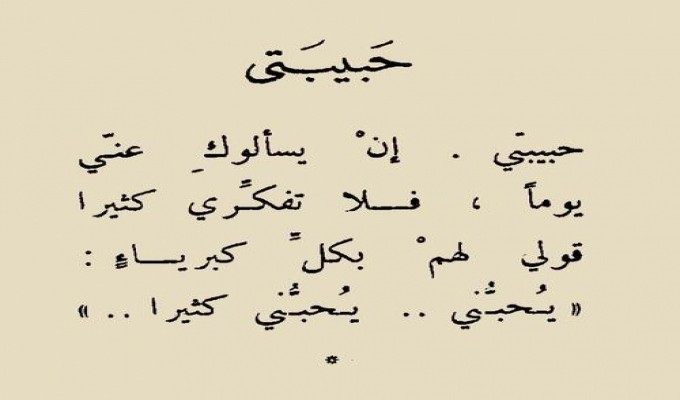 حَبيبَتى
حبيبتي . إنْ يسألوكِ عنّي
يوماً ، فـلا تفكّري كثيرا
قولي لهمْ بكلّ كبريـاءٍ :
« يُحبُّني .. يُحبُّني كثيرا .. »